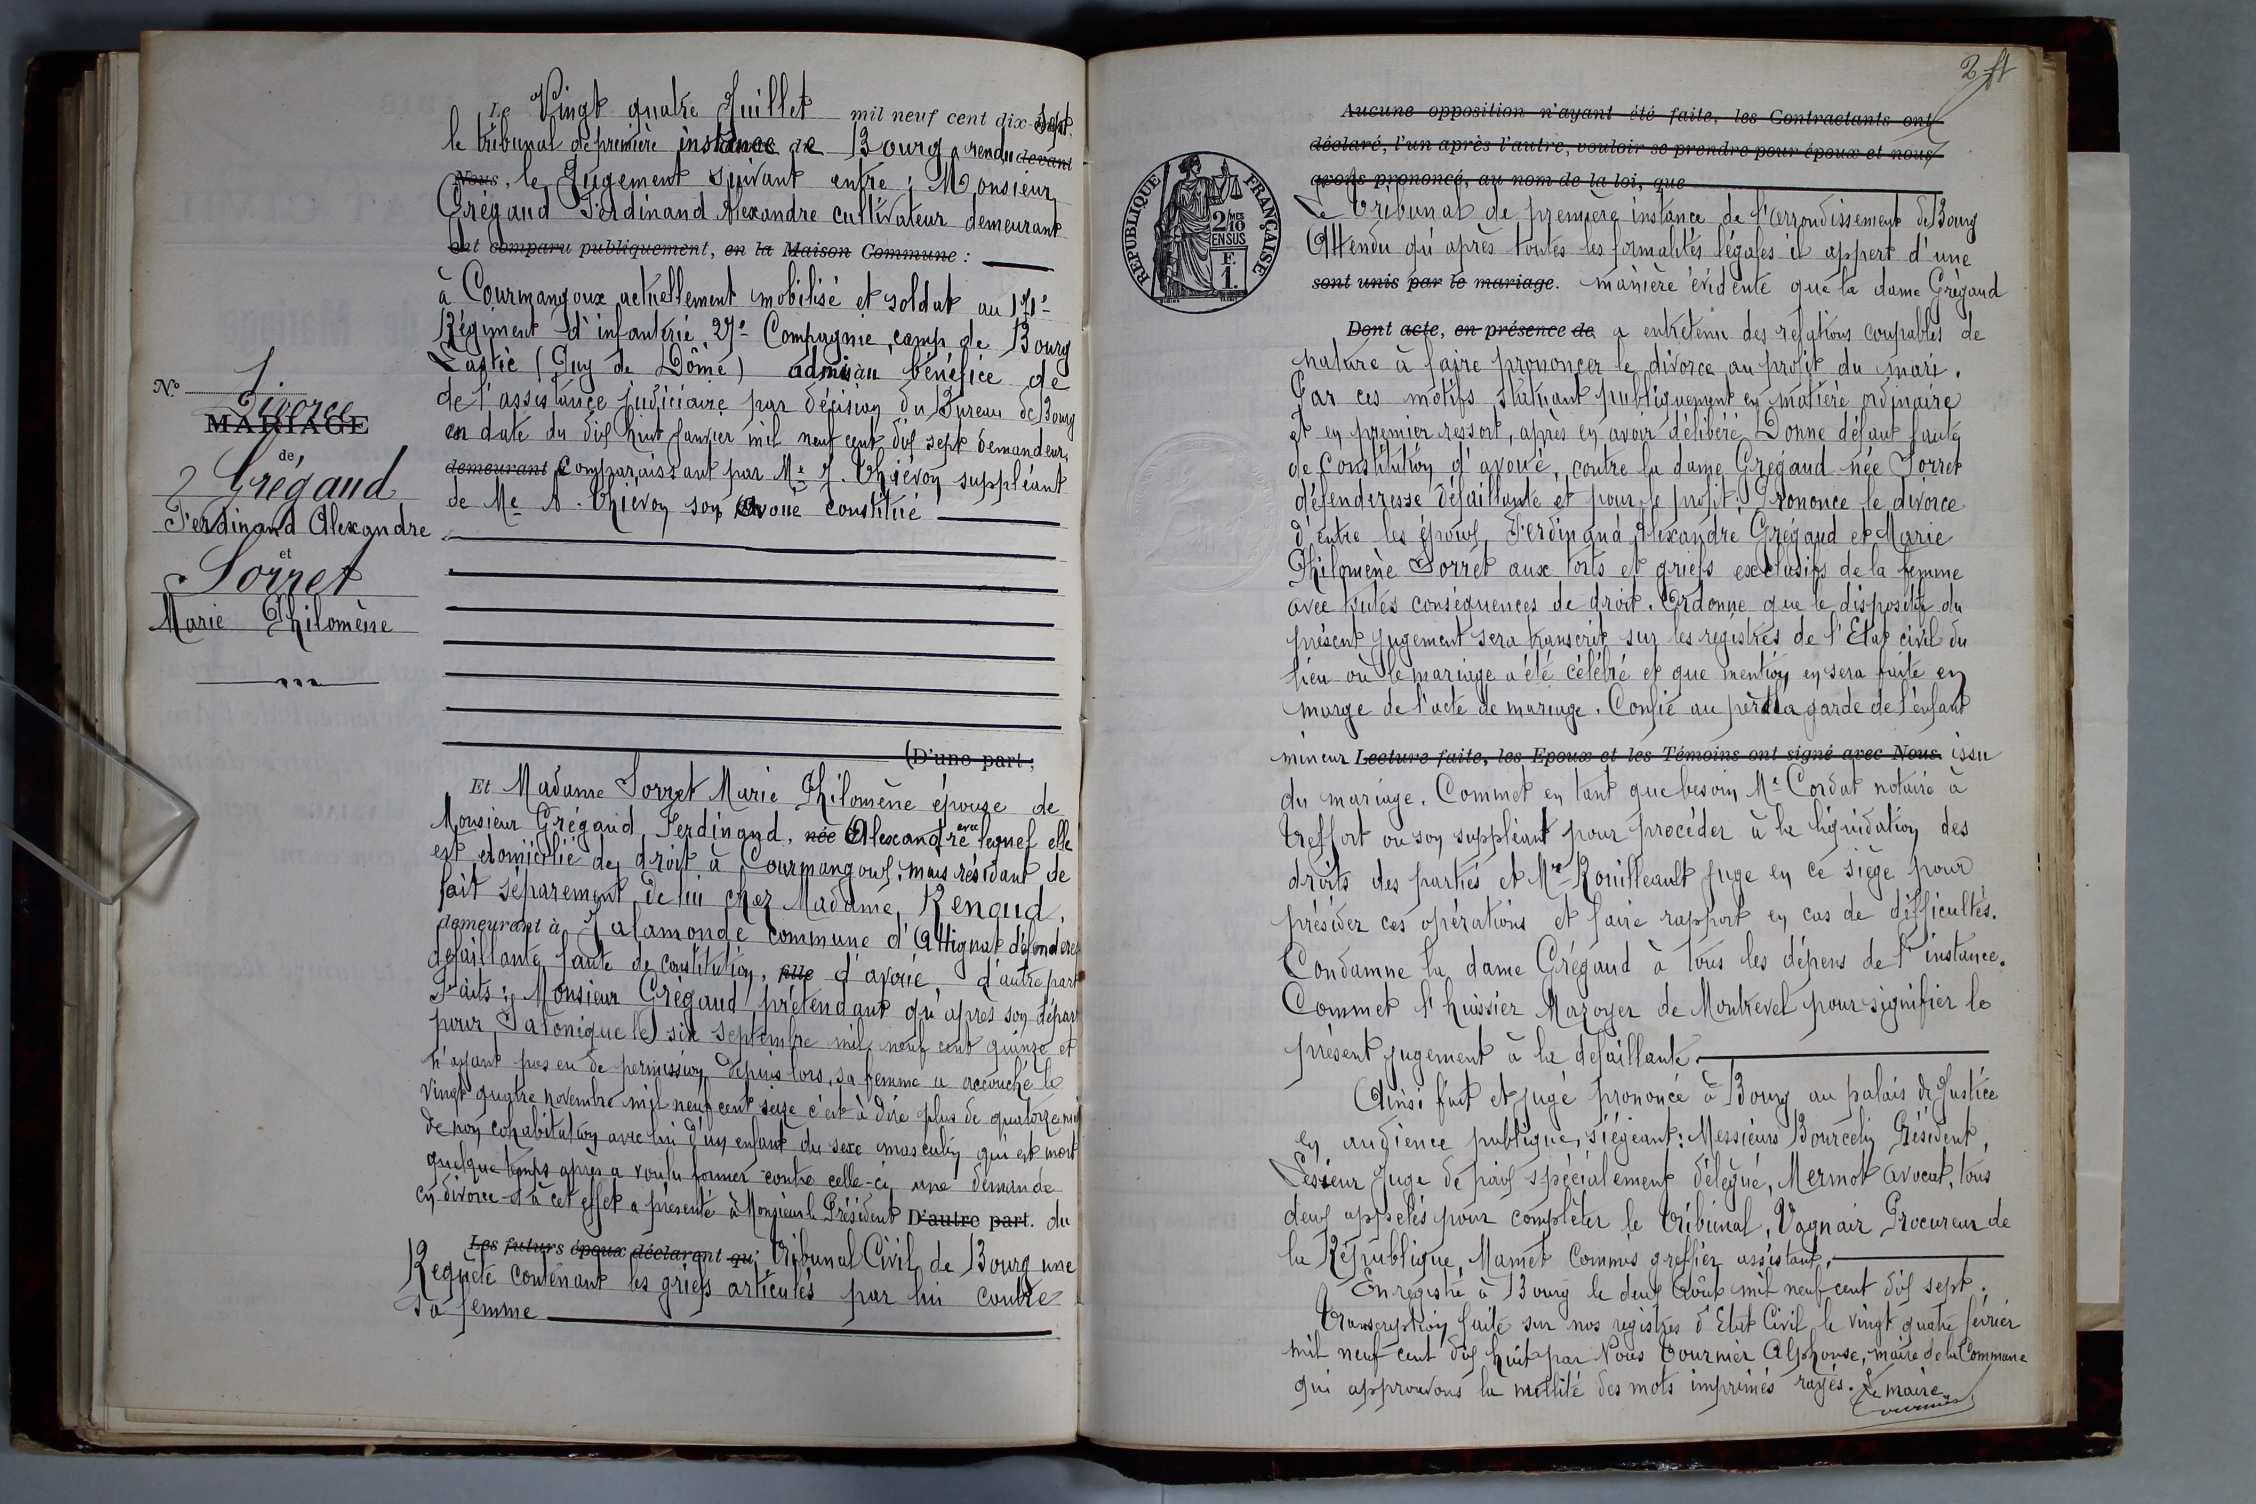 Le Vingt quatre Juillet mil neuf cent dix-sept.
le tribunal de première instance de Bourg a rendu devant
Nous, le Jugement suivant entre ; Monsieur
Grégaud Ferdinand Alexandre cultivateur demeurant
ont comparu publiquement, en la Maison Commune :
à Courmangoux actuellement mobilisé et soldat au 171e
Régiment d'infanterie, 27e Compagnie, camp de Bourg
Lastic (Puy de Dôme) admis au bénéfice de
de l'assistance judiciaire par décision du Bureau de Bourg
en date du dix huit Janvier mil neuf cent dix sept demandeur,
demeurant Comparaissant par Me J. Chievon suppléant
de Me A. Chievon son avoué constitué
No 1.
Divorce
MARIAGE
de
Grégaud
Ferdinand Alexandre
et
Sorret
Marie Philomène
(D'une part ;
Et Madame Sorret Marie Philomène épouse de
Monsieur Grégaud, Ferdinand, née Alexandre avec lequel elle
est domicilié de droit à Courmangoux, mais résidant de
fait séparement de lui chez Madame Renoud,
demeurant à Salamonde commune d'Attignat défenderes
defaillante faute de constitution, fille d'avoué, d'autre part
Faits : Monsieur Grégaud prétendant qu'après son départ
pour Salonique le six septembre mil neuf cent quinze et
n'ayant pas eu de permission depuis lors, sa femme a accouché le
Vingt quatre novembre mil neuf cent seize c'est à dire plus de quatorze mois
de non cohabitation avec lui d'un enfant du sexe masculin qui est mort
quelque temps après a voulu former contre celle-ci une demande
en divorce et à cet effet a présenté à Monsieur le Président D'autre part. du
Les futurs époux déclarent qu Tribunal Civil de Bourg une
Requête contenant les griefs articulés par lui contre
sa femme
2 ft
Aucune opposition n'ayant été faite, les Contractants ont
déclaré, l'un après l'autre, vouloir se prendre pour époux et nous
avons prononcé, au nom de la loi, que
REPUBLIQUE FRANÇAISE
2/10MES
EN SUS
F.
1.
Le Tribunal de première instance de l'arrondissement de Bourg
Attendu qu'après toutes les formalités légales il appert d'une
sont unis par le mariage. manière évidente que la dame Grégaud
Dont acte, en présence de a entretenu des relations coupables de
nature à faire prononcer le divorce au profit du mari.
Par ces motifs statuant publiquement en matière ordinaire
et en premier ressort, après en avoir délibéré Donne défaut faute
de Constitution d'avoué, contre la dame Grégaud née Sorret
défenderesse défaillante et pour le profit, Prononce le divorce
d'entre les époux Ferdinand Alexandre Grégaud et Marie
Philomène Sorret aux torts et griefs exclusifs de la femme
avec toutes conséquences de droit. Ordonne que le dispositif du
présent jugement sera transcrit sur les registres de l'Etat civil du
lieu où le mariage a été célébré et que mention en sera faite en
marge de l'acte de mariage. Confie au père la garde de l'enfant
mineur Lecture faite, les Epoux et les Témoins ont signé avec Nous. issu
du mariage. Commet en tant que besoin Me Cordat notaire à
Treffort ou son suppléant pour procéder à la liquidation des
droits des parties et Mr Rouilleault Juge en ce siège pour
présider ces opérations et faire rapport en cas de difficultés.
Condamne la dame Grégaud à tous les dépens de l'instance.
Commet l'huissier Mazoyer de Montrevel pour signifier le
présent jugement à la défaillante.
Ainsi fait et jugé prononcé à Bourg au palais de Justice
en audience publique, siégeant : Messieurs Bourcelin Président,
Lesieur Juge de paix spécialement délégué, Mermot avocat, tous
deux appelés pour compléter le Tribunal, Vagnair Procureur de
la République, Mamet Commis greffier assistant.
Enregistré à Bourg le deux Août mil neuf cent dix sept.
Transcription faite sur nos registres d'Etat Civil le vingt quatre février
mil neuf cent dix huit par Nous Tournier Alphonse, maire de la Commune
qui approuvons la nullité des mots imprimés rayés. Le maire
Tournier